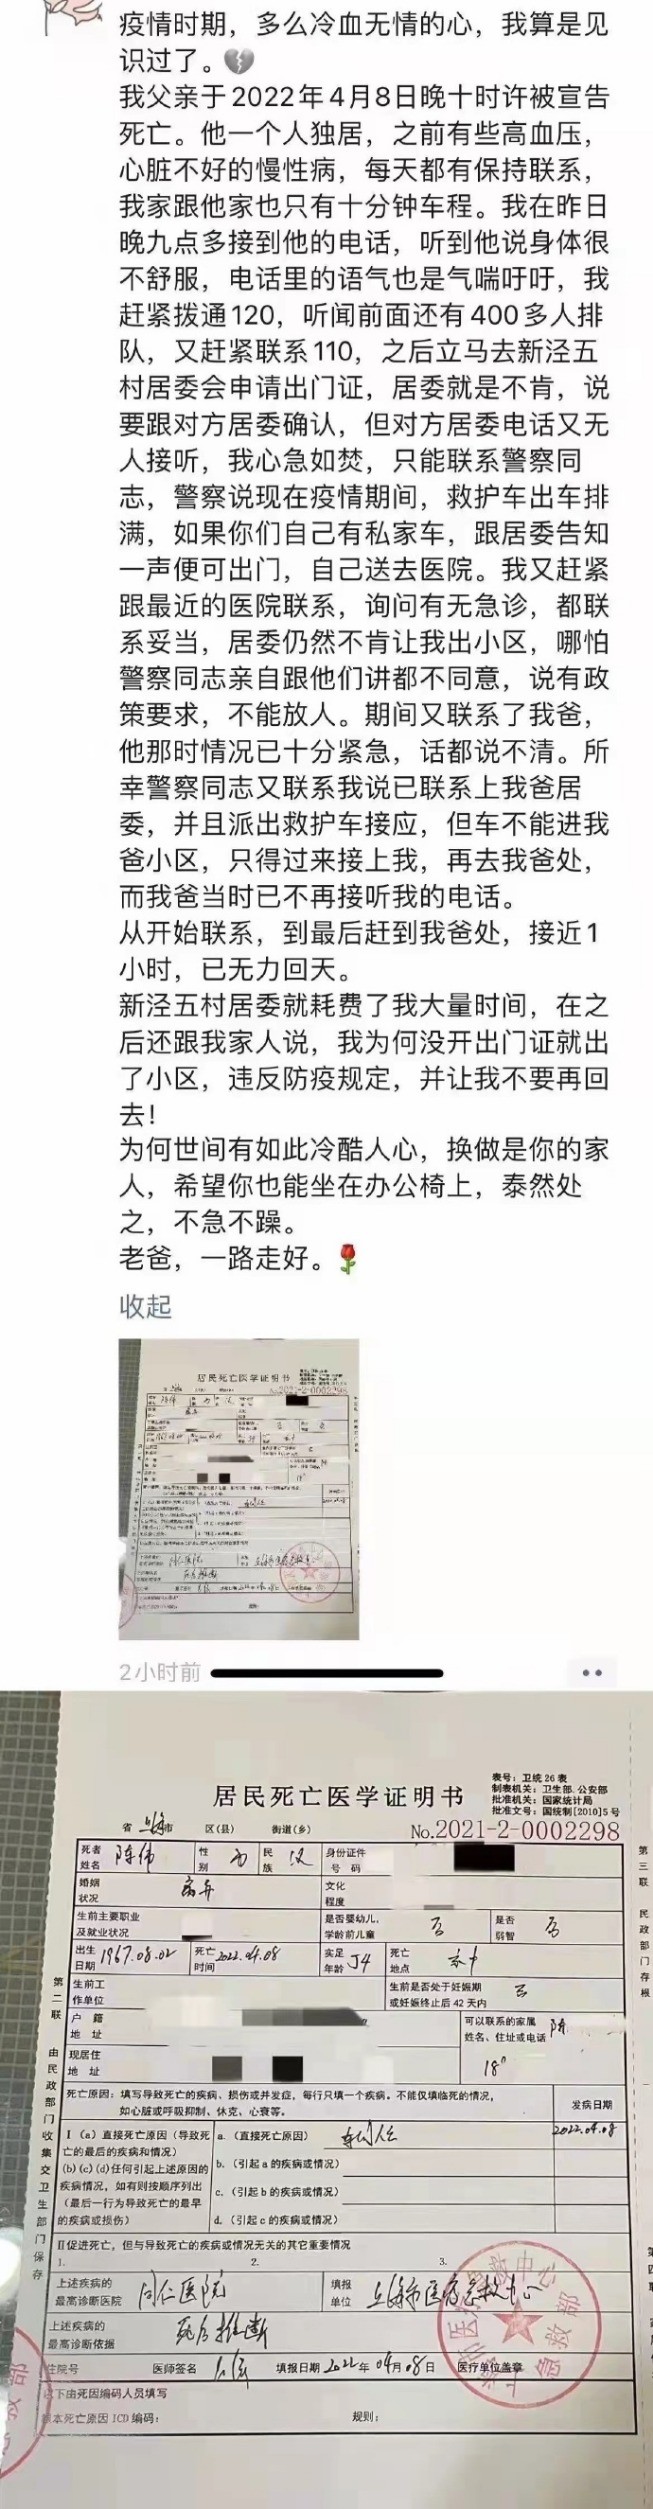 疫情时期，多么冷血无情的心，我算是见
识过了。💔
我父亲于2022年4月8日晚十时许被宣告
死亡。他一个人独居，之前有些高血压，
心脏不好的慢性病，每天都有保持联系，
我家跟他家也只有十分钟车程。我在昨日
晚九点多接到他的电话，听到他说身体很
不舒服，电话里的语气也是气喘吁吁，我
赶紧拨通120，听闻前面还有400多人排
队，又赶紧联系110，之后立马去新泾五
村居委会申请出门证，居委就是不肯，说
要跟对方居委确认，但对方居委电话又无
人接听，我心急如焚，只能联系警察同
志，警察说现在疫情期间，救护车出车排
满，如果你们自己有私家车，跟居委告知
一声便可出门，自己送去医院。我又赶紧
跟最近的医院联系，询问有无急诊，都联
系妥当，居委仍然不肯让我出小区，哪怕
警察同志亲自跟他们讲都不同意，说有政
策要求，不能放人。期间又联系了我爸，
他那时情况已十分紧急，话都说不清。所
幸警察同志又联系我说已联系上我爸居
委，并且派出救护车接应，但车不能进我
爸小区，只得过来接上我，再去我爸处，
而我爸当时已不再接听我的电话。
从开始联系，到最后赶到我爸处，接近1
小时，已无力回天。
新泾五村居委就耗费了我大量时间，在之
后还跟我家人说，我为何没开出门证就出
了小区，违反防疫规定，并让我不要再回
去！
为何世间有如此冷酷人心，换做是你的家
人，希望你也能坐在办公椅上，泰然处
之，不急不躁。
老爸，一路走好。🌹
收起
居民死亡医学证明书
No.2021-2-0002298
2小时前
居民死亡医学证明书
表号：卫统26表
制表机关：卫生部.公安部
批准机关：国家统计局
批准文号：国统制[2010]5号
省 上海市 区(县) 街道(乡)
No.2021-2-0002298
死者姓名 陈伟 性别 男 民族 汉 身份证件号码
婚姻状况 离异 文化程度
生前主要职业及就业状况 是否婴幼儿,学龄前儿童 否 是否弱智 否
出生日期 1967.08.02 死亡时间 2022.04.08 实足年龄 54 死亡地点 家中
生前工作单位 生前是否处于妊娠期或妊娠终止后42天内 否
户籍地址 可以联系的家属姓名、住址或电话 陈
现居住地址 18°
死亡原因：填写导致死亡的疾病、损伤或并发症，每行只填一个疾病。不能仅填临死的情况，
如心脏或呼吸抑制、休克、心衰等。 发病日期
I (a) 直接死亡原因（导致死亡的最后的疾病和情况） a. (直接死亡原因) 2022.04.08
(b)(c)(d)任何引起上述原因的疾病情况，如有则按顺序列出 b. (引起a的疾病或情况)
（最后一行为导致死亡的最早的疾病或损伤） c. (引起b的疾病或情况)
d. (引起c的疾病或情况)
II促进死亡，但与导致死亡的疾病或情况无关的其它重要情况
1. 2. 3.
上述疾病的最高诊断医院 同仁医院 填报单位 上海市医疗急救中心
上述疾病的最高诊断依据 死后推断
住院号 医师签名 填报日期 2022年04月08日 医疗单位盖章
以下由死因编码人员填写
根本死亡原因ICD编码： 规则：
第二联 由民政部门收集交卫生部门保存
第三联 民政部门存根